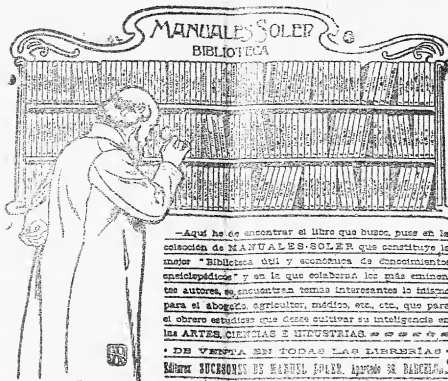 MANUALES SOLER
BIBLIOTECA
—Aquí he de encontrar el libro que busco, pues en la
colección de MANUALES-SOLER que constituye la
mejor "Biblioteca útil y económica de conocimientos
enciclopédicos" y en la que colaboran los más eminen-
tes autores, se encuentran temas interesantes lo mismo
para el abogado, agricultor, médico, etc., etc., que para
el obrero estudioso que desee cultivar su inteligencia en
las ARTES, CIENCIAS E INDUSTRIAS.
DE VENTA EN TODAS LAS LIBRERIAS
Editores SUCESORES DE MANUEL SOLER. Apartado 89, BARCELONA